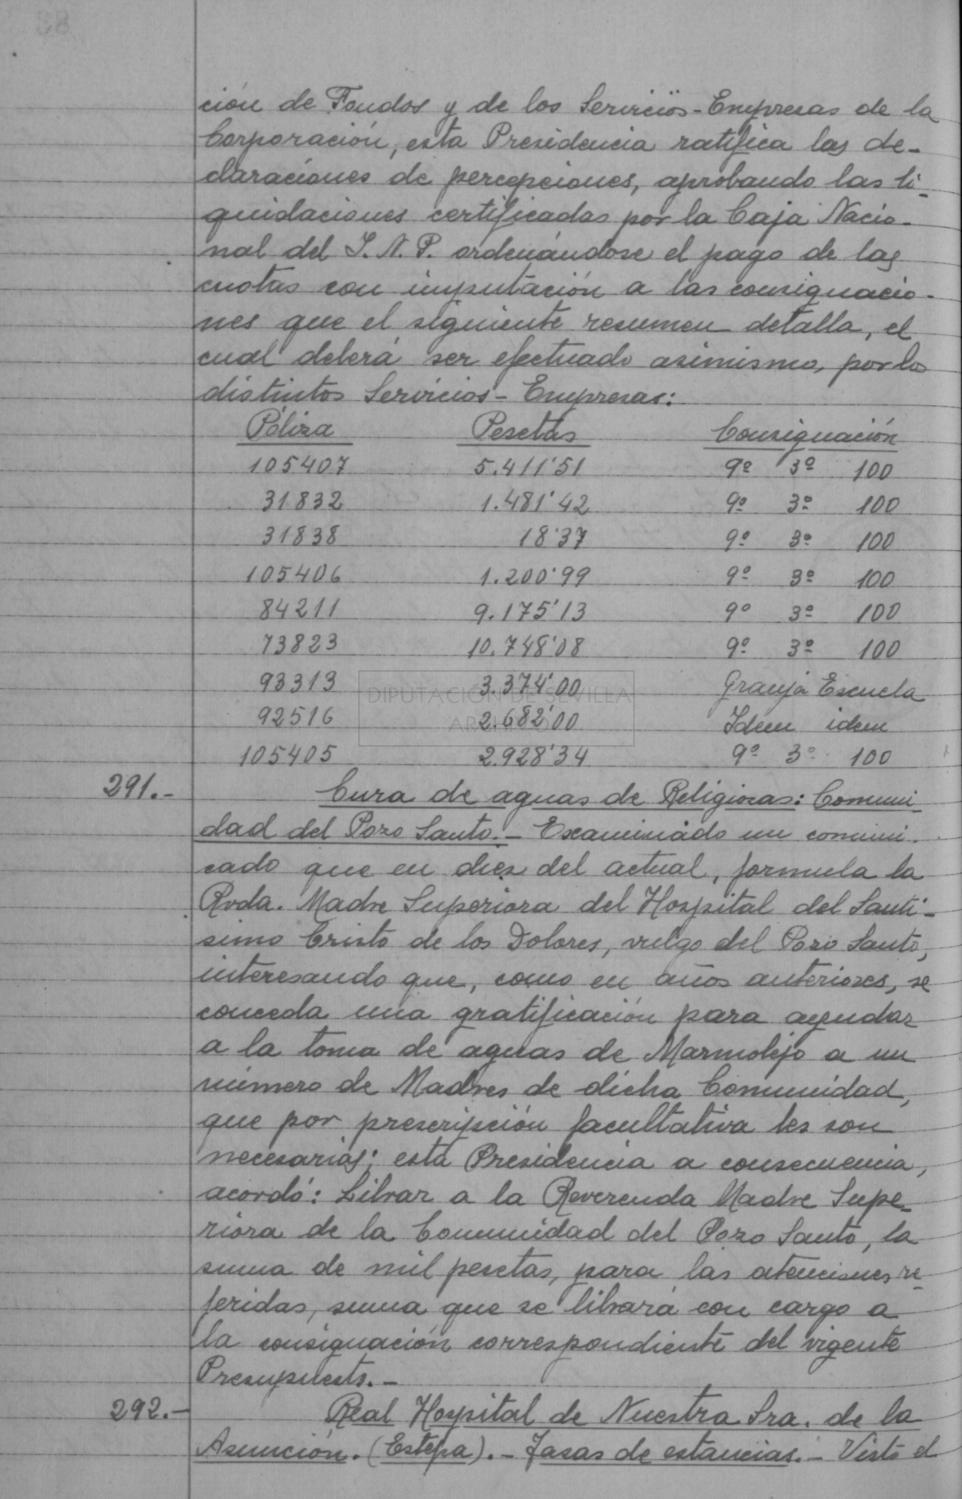 ción de Fondos y de los Servicios-Empresas de la
Corporación, esta Presidencia ratifica las de-
claraciones de percepciones, aprobando las li-
quidaciones certificadas por la Caja Nacio-
nal del I.N.P. ordenándose el pago de las
cuotas con imputación a las consignacio-
nes que el siguiente resumen detalla, el
cual deberá ser efectuado asimismo, por los
distintos Servicios-Empresas:
Póliza Pesetas Consignación
105407 5.411'51 9º 3º 100
31832 1.481'42 9º 3º 100
31838 18'37 9º 3º 100
105406 1.200'99 9º 3º 100
84211 9.175'13 9º 3º 100
73823 10.748'08 9º 3º 100
93313 3.374'00 Granja Escuela
DIPUTACIÓN DE SEVILLA
92516 2.682'00 Idem idem
105405 2.928'34 9º 3º 100
291.- Cura de aguas de Religiosas: Comuni-
dad del Pozo Santo.- Examinado un comuni-
cado que en diez del actual, formula la
Rvda. Madre Superiora del Hospital del Santí-
simo Cristo de los Dolores, vulgo del Pozo Santo,
interesando que, como en años anteriores, se
conceda una gratificación para ayudar
a la toma de aguas de Marmolejo a un
número de Madres de dicha Comunidad,
que por prescripción facultativa les son
necesarias; esta Presidencia a consecuencia,
acordó: Librar a la Reverenda Madre Supe-
riora de la Comunidad del Pozo Santo, la
suma de mil pesetas, para las atenciones re-
feridas, suma que se librará con cargo a
la consignación correspondiente del vigente
Presupuesto.-
292.- Real Hospital de Nuestra Sra. de la
Asunción. (Estepa).- Tasas de estancias.- Visto el